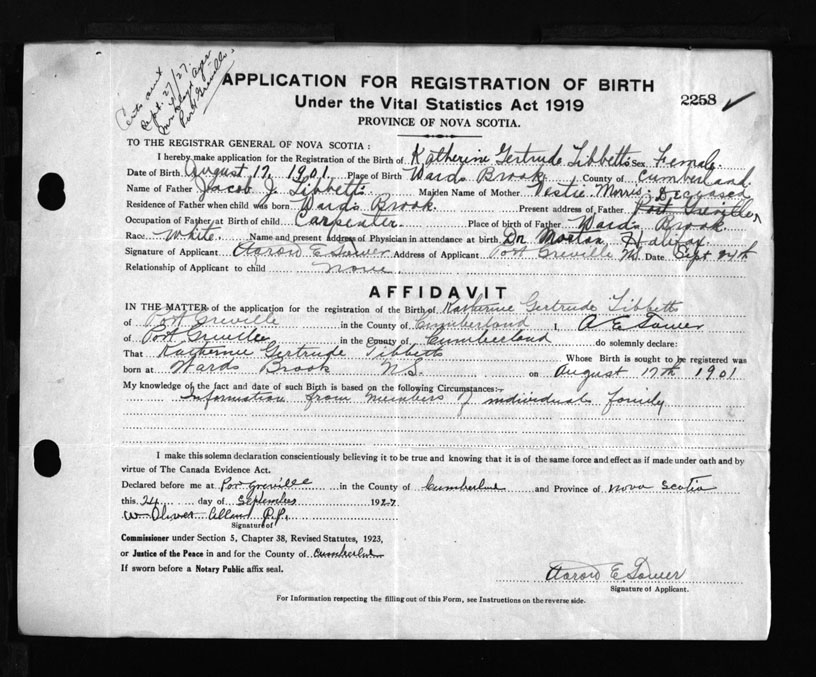 Sept. 27/27.
Port Greville.
APPLICATION FOR REGISTRATION OF BIRTH
2258
Under the Vital Statistics Act 1919
PROVINCE OF NOVA SCOTIA.
TO THE REGISTRAR GENERAL OF NOVA SCOTIA :
I hereby make application for the Registration of the Birth of Katherine Gertrude Tibbetts Sex Female.
Date of Birth August 17, 1901. Place of Birth Wards Brook County of Cumberland.
Name of Father Jacob J. Tibbetts Maiden Name of Mother Vestie Morris. Deceased
Residence of Father when child was born Wards Brook. Present address of Father Port Greville
Occupation of Father at Birth of child Carpenter. Place of birth of Father Wards Brook
Race White. Name and present address of Physician in attendance at birth Dr Morton, Halifax
Signature of Applicant Aarow E. Tower Address of Applicant Port Greville NS Date Sept 24th
Relationship of Applicant to child None
AFFIDAVIT
IN THE MATTER of the application for the registration of the Birth of Katherine Gertrude Tibbetts
of Port Greville in the County of Cumberland I, A E Tower
of Port Greville in the County of Cumberland do solemnly declare:
That Katherine Gertrude Tibbetts Whose Birth is sought to be registered was
born at Wards Brook N S. on August 17th 1901
My knowledge of the fact and date of such Birth is based on the following Circumstances:-
Information from members of individuals family
I make this solemn declaration conscientiously believing it to be true and knowing that it is of the same force and effect as if made under oath and by
virtue of The Canada Evidence Act.
Declared before me at Port Greville in the County of Cumberland and Province of Nova Scotia
this 24 day of September 1927
W Oliver J.P.
Signature of
Commissioner under Section 5, Chapter 38, Revised Statutes, 1923,
or Justice of the Peace in and for the County of Cumberland
If sworn before a Notary Public affix seal.
Aarow E. Tower
Signature of Applicant.
For Information respecting the filling out of this Form, see Instructions on the reverse side.